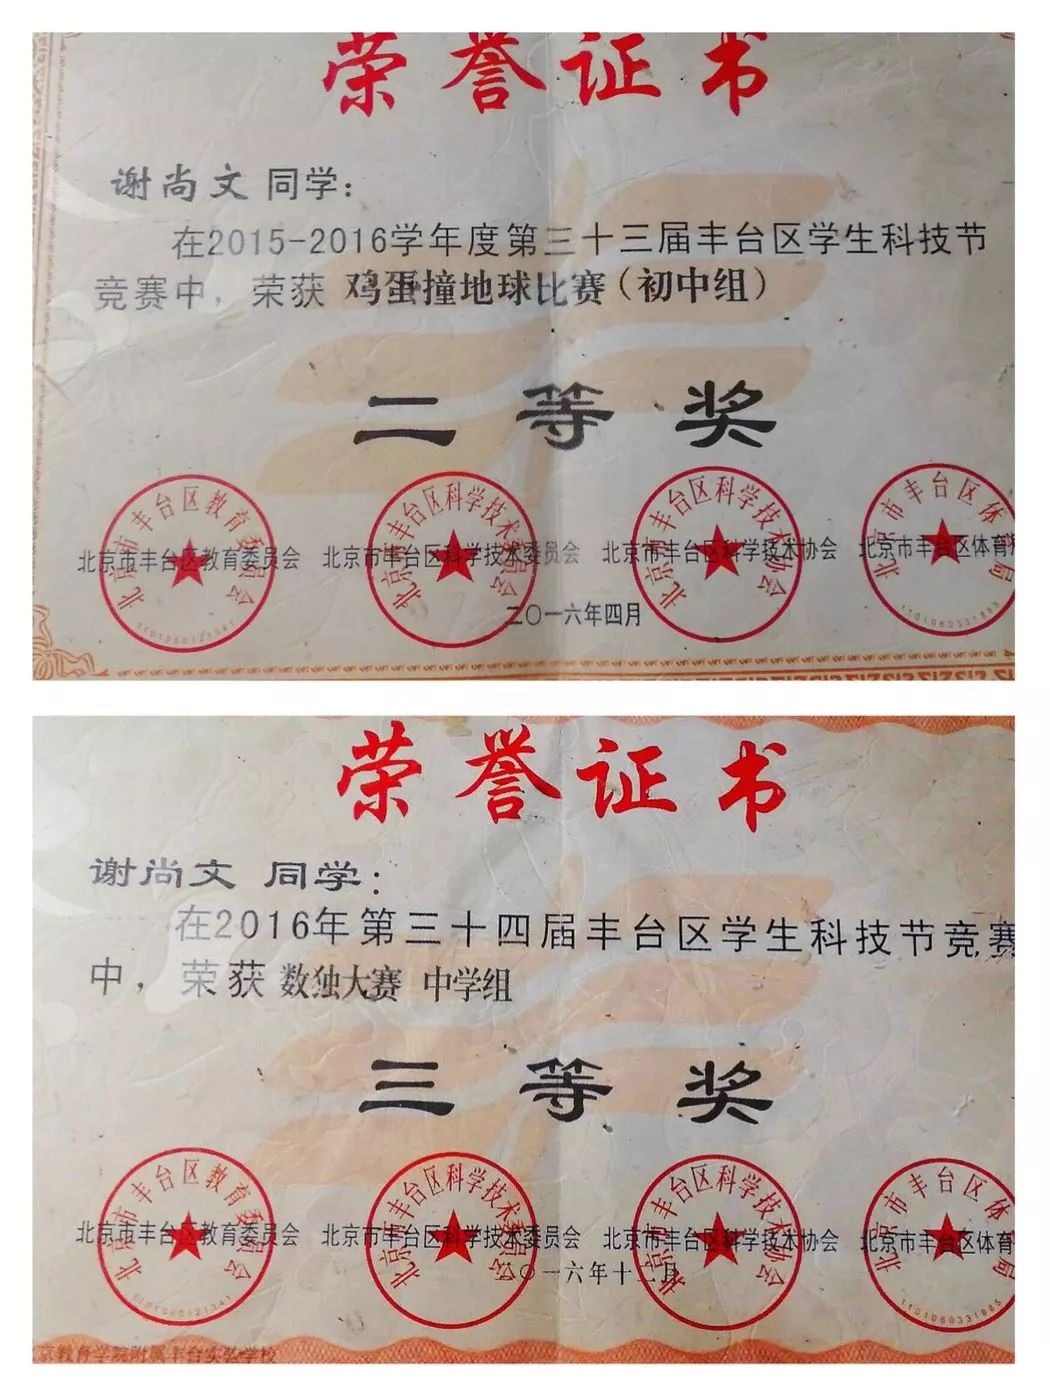 荣誉证书
谢尚文 同学：
在2015-2016学年度第三十三届丰台区学生科技节
竞赛中，荣获 鸡蛋撞地球比赛（初中组）
二等奖
北京市丰台区教育委员会 北京市丰台区科学技术委员会 北京市丰台区科学技术协会 北京市丰台区体育
北京市丰台区教育委员会
1101060121341
北京市丰台区科学技术委员会
北京市丰台区科学技术协会
北京市丰台区体育局
1101060331885
二〇一六年四月
荣誉证书
谢尚文 同学：
在2016年第三十四届丰台区学生科技节竞赛
中，荣获 数独大赛 中学组
三等奖
北京市丰台区教育委员会 北京市丰台区科学技术委员会 北京市丰台区科学技术协会 北京市丰台区体育
北京市丰台区教育委员会
1101060121341
北京市丰台区科学技术委员会
北京市丰台区科学技术协会
北京市丰台区体育局
1101060331885
二〇一六年十二月
京教育学院附属丰台实验学校